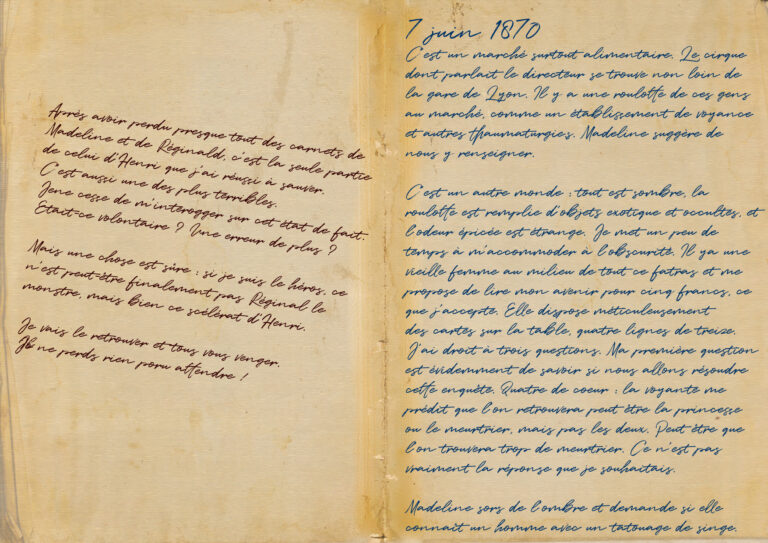 Après avoir perdu presque tout des carnets de
Madeline et de Réginald, c'est la seule partie
de celui d'Henri que j'ai réussi à sauver.
C'est aussi une des plus terribles.
Jene cesse de m'interogger sur cet état de fait.
Etait-ce volontaire ? Une erreur de plus ?
Mais une chose est sûre : si je suis le héros, ce
n'est peut-être finalement pas Réginal le
monstre, mais bien ce scélérat d'Henri.
Je vais le retrouver et tous vous venger.
Il ne perds rien poru attendre !
7 juin 1870
C'est un marché surtout alimentaire. Le cirque
dont parlait le directeur se trouve non loin de
la gare de Lyon. Il y a une roulotte de ces gens
au marché, comme un établissement de voyance
et autres thaumaturgies. Madeline suggère de
nous y renseigner.
C'est un autre monde : tout est sombre, la
roulotte est remplie d'objets exotique et occultes, et
l'odeur épicée est étrange. Je met un peu de
temps à m'accommoder à l'obscurité. Il ya une
vieille femme au milieu de tout ce fatras et me
propose de lire mon avenir pour cinq francs, ce
que j'accepte. Elle dispose méticuleusement
des cartes sur la table, quatre lignes de treize.
J'ai droit à trois questions. Ma première question
est évidemment de savoir si nous allons résoudre
cette enquête. Quatre de coeur : la voyante me
prédit que l'on retrouvera peut être la princesse
ou le meurtrier, mais pas les deux. Peut être que
l'on trouvera trop de meurtrier. Ce n'est pas
vraiment la réponse que je souhaitais.
Madeline sors de l'ombre et demande si elle
connait un homme avec un tatouage de singe.